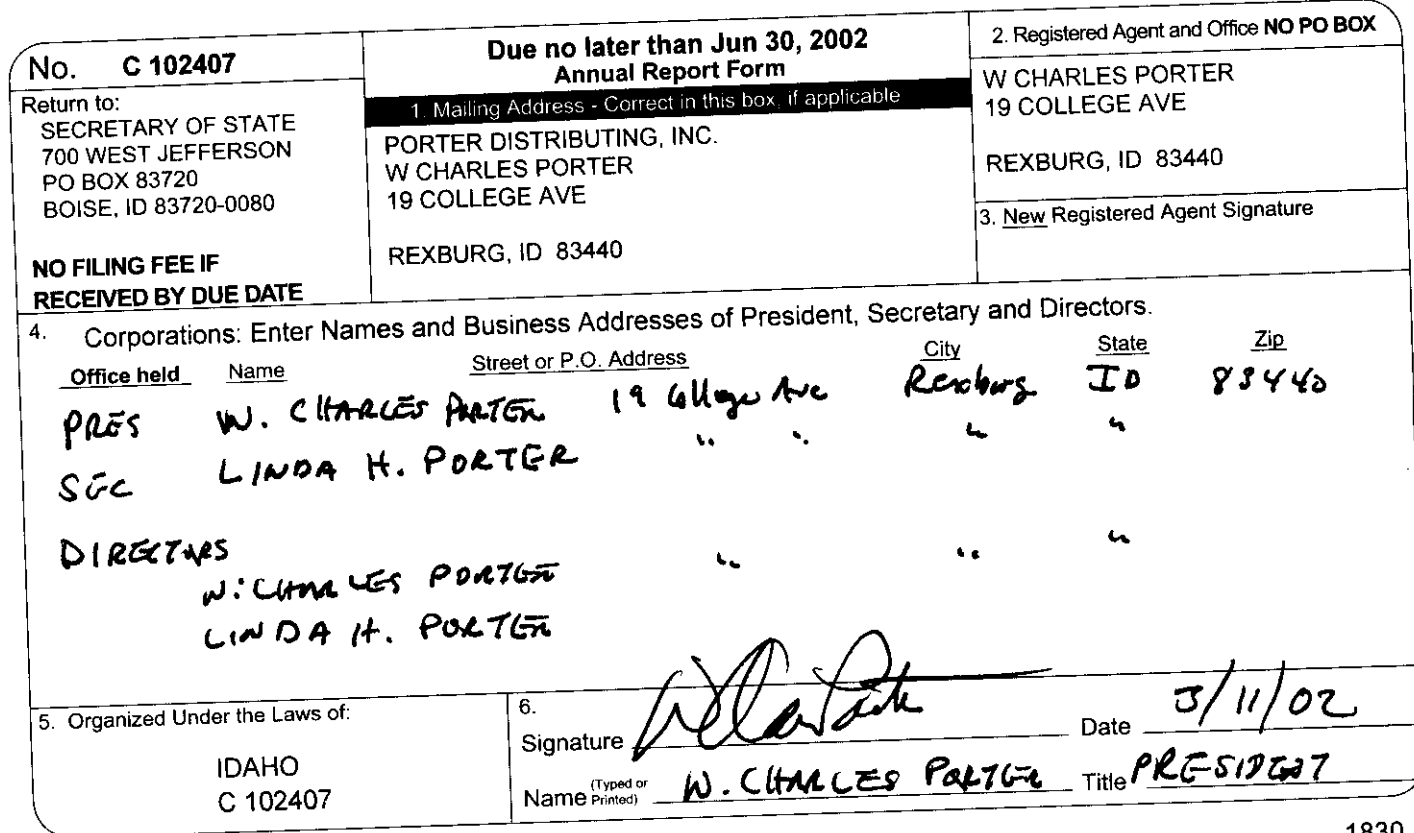 No. C 102407
Return to:
SECRETARY OF STATE
700 WEST JEFFERSON
PO BOX 83720
BOISE, ID 83720-0080
NO FILING FEE IF
RECEIVED BY DUE DATE
Due no later than Jun 30, 2002
Annual Report Form
1. Mailing Address - Correct in this box, if applicable
PORTER DISTRIBUTING, INC.
W CHARLES PORTER
19 COLLEGE AVE
REXBURG, ID 83440
2. Registered Agent and Office NO PO BOX
W CHARLES PORTER
19 COLLEGE AVE
REXBURG, ID 83440
3. New Registered Agent Signature
4. Corporations: Enter Names and Business Addresses of President, Secretary and Directors.
Office held Name Street or P.O. Address City State Zip
PRES W. CHARLES PORTER 19 College Ave Rexburg ID 83440
SEC LINDA H. PORTER " " " "
DIRECTORS " " "
W. CHARLES PORTER
LINDA H. PORTER
5. Organized Under the Laws of:
IDAHO
C 102407
6.
Signature Date 3/11/02
Name (Typed or Printed) W. CHARLES PORTER Title PRESIDENT
1830